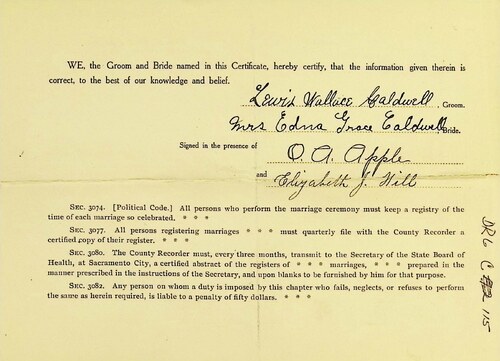 WE, the Groom and Bride named in this Certificate, hereby certify, that the information given therein is
correct, to the best of our knowledge and belief.
Lewis Wallace Caldwell, Groom.
Mrs Edna Grace Caldwell, Bride.
Signed in the presence of
O. A. Apple
and Elizabeth J. Hill
SEC. 3074. [Political Code.] All persons who perform the marriage ceremony must keep a registry of the
time of each marriage so celebrated. * * *
SEC. 3077. All persons registering marriages * * * must quarterly file with the County Recorder a
certified copy of their register. * * *
SEC. 3080. The County Recorder must, every three months, transmit to the Secretary of the State Board of
Health, at Sacramento City, a certified abstract of the registers of * * * marriages, * * * prepared in the
manner prescribed in the instructions of the Secretary, and upon blanks to be furnished by him for that purpose.
SEC. 3082. Any person on whom a duty is imposed by this chapter who fails, neglects, or refuses to perform
the same as herein required, is liable to a penalty of fifty dollars. * * *
C
115